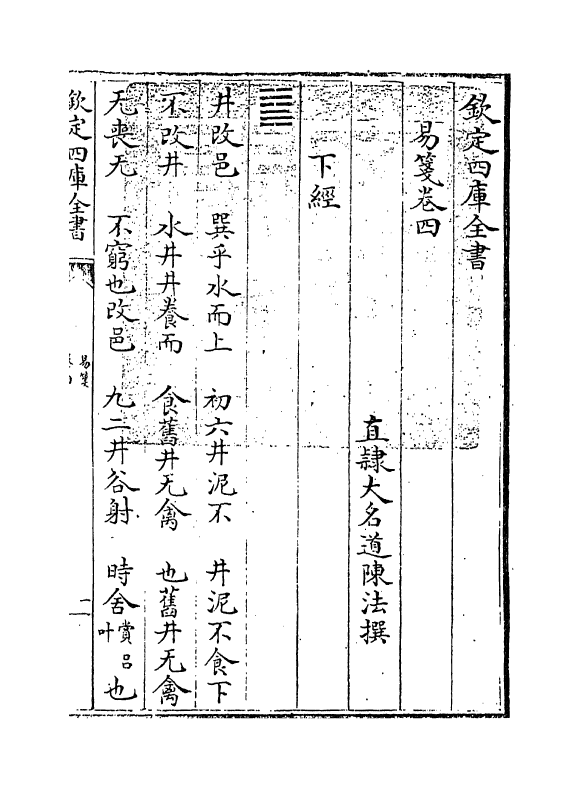 欽定四庫全書
易箋卷四
直隸大名道陳法撰
下經
䷯
井改邑　巽乎水而上　初六井泥不　井泥不食下
不改井　水井井養而　食舊井无禽　也舊井无禽
无喪无　不窮也改邑　九二井谷射　時舍賞呂叶也
欽定四庫全書　易箋　一